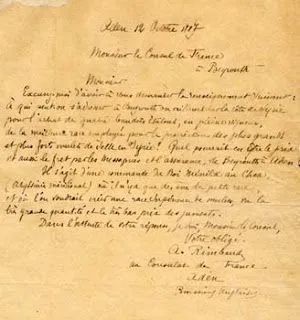 Aden 12 Octobre 1887
Monsieur le Consul de France
à Beyrouth
Monsieur
Excusez-moi d'avoir à vous demander le renseignement suivant:
à qui peut-on s'adresser à Beyrouth ou ailleurs sur la côte de Syrie
pour l'achat de quatre baudets étalons, en pleine vigueur,
de la meilleure race employée pour la procréation des plus grands
et plus forts mulets de selle en Syrie? Quel pourrait en être le prix
et aussi le fret par les Messageries et assurance, de Beyrouth à Aden?
Il s'agit d'une commande du Roi Ménélik au Choa
(Abyssinie méridionale) où il n'y a que des ânes de petite race
et où l'on voudrait créer une race supérieure de mulets, vu la
très grande quantité et le très bas prix des juments.
Dans l'attente de votre réponse, je suis, Monsieur le Consul,
Votre obligé
A. Rimbaud
au Consulat de France
Aden